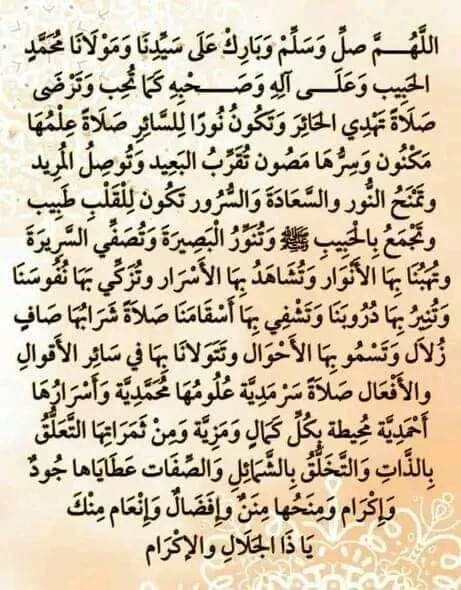 اللَّهُـــمَّ صلِّ وَسَلِّمْ وَبَارِكْ عَلَى سَيِّدِنَا وَمَوْلَانَا مُحَمَّدٍ
الحَبِيب وَعَلَـــى آلِهِ وَصَـــحْبِهِ كَمَا تُحِب وَتَرْضَى
صَلَاةً تَهْدِي الحَائِرَ وَتَكُونُ نُورًا لِلسَّائِرِ صَلَاةً عِلْمُهَا
مَكْنُون وَسِرُّهَا مَصُون تُقَرِّبُ البَعِيد وَتُوصِلُ المُرِيد
وتَمْنَحُ النُّور والسَّعَادَةَ وَالسُّرُور تَكُون لِلْقَلْبِ طَبِيب
وتَجْمَعُ بِالْحَبِيبِ ﷺ وَتُنَوِّرُ الْبَصِيرَةَ وَتُصَفِّي السَّرِيرَةَ
وتُهِبُنَا بِهَا الأَنْوَار وَتُشَاهَدُ بِهَا الأَسْرَار وَتُزَكِّي بَهَا نُفُوسَنَا
وَتُنِيرُ بِهَا دُرُوبَنَا وَتَشْفِي بِهَا أَسْقَامَنَا صَلَاةً شَرَابُهَا صَافٍ
زُلاَل وَتَسْمُو بِهَا الأَحْوَال وتَتَوَلانَا بِهَا في سَائِرِ الأَقوالِ
والأَفْعَال صَلاَةً سَرْمَدِيَّة عُلُومُهَا مُحَمَّدِيَّة وَأَسْرَارُهَا
أَحْمَدِيَّة مُحِيطة بِكُلِّ كَمَالٍ وَمَزِيَّة وَمِنْ ثَمَرَاتِهَا التَّعَلُّقُ
بِالذَّاتِ وَالتَّخَلُّقُ بِالشَّمَائِلِ وَالصِّفَات عَطَايَاها جُودٌ
وَإِكْرَام وَمَنَحُها مِنَنٌ وإِفْضَالٌ وَإِنْعَام مِنْكَ
يَا ذَا الجَلَالِ والإِكْرَام